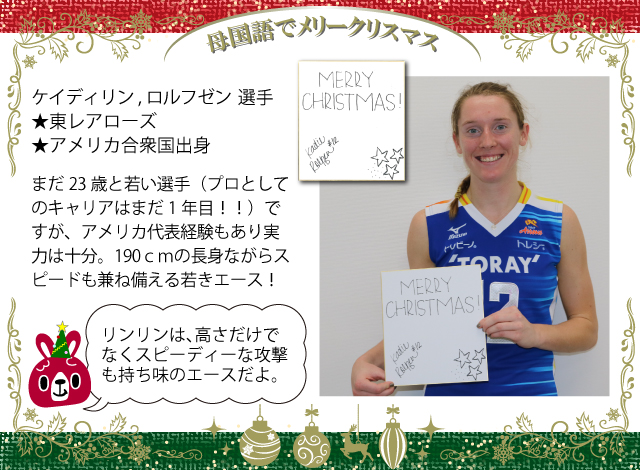 母国語でメリークリスマス
ケイディリン , ロルフゼン 選手
★東レアローズ
★アメリカ合衆国出身
まだ 23 歳と若い選手（プロとして
のキャリアはまだ 1 年目！！）で
すが、アメリカ代表経験もあり実
力は十分。190ｃｍの長身ながらス
ピードも兼ね備える若きエース！
リンリンは、高さだけで
なくスピーディーな攻撃
も持ち味のエースだよ。
MERRY
CHRISTMAS!
#12
MIZUNO
トレビーノ
トレシー
'TORAY'
12
MERRY
CHRISTMAS!
#12